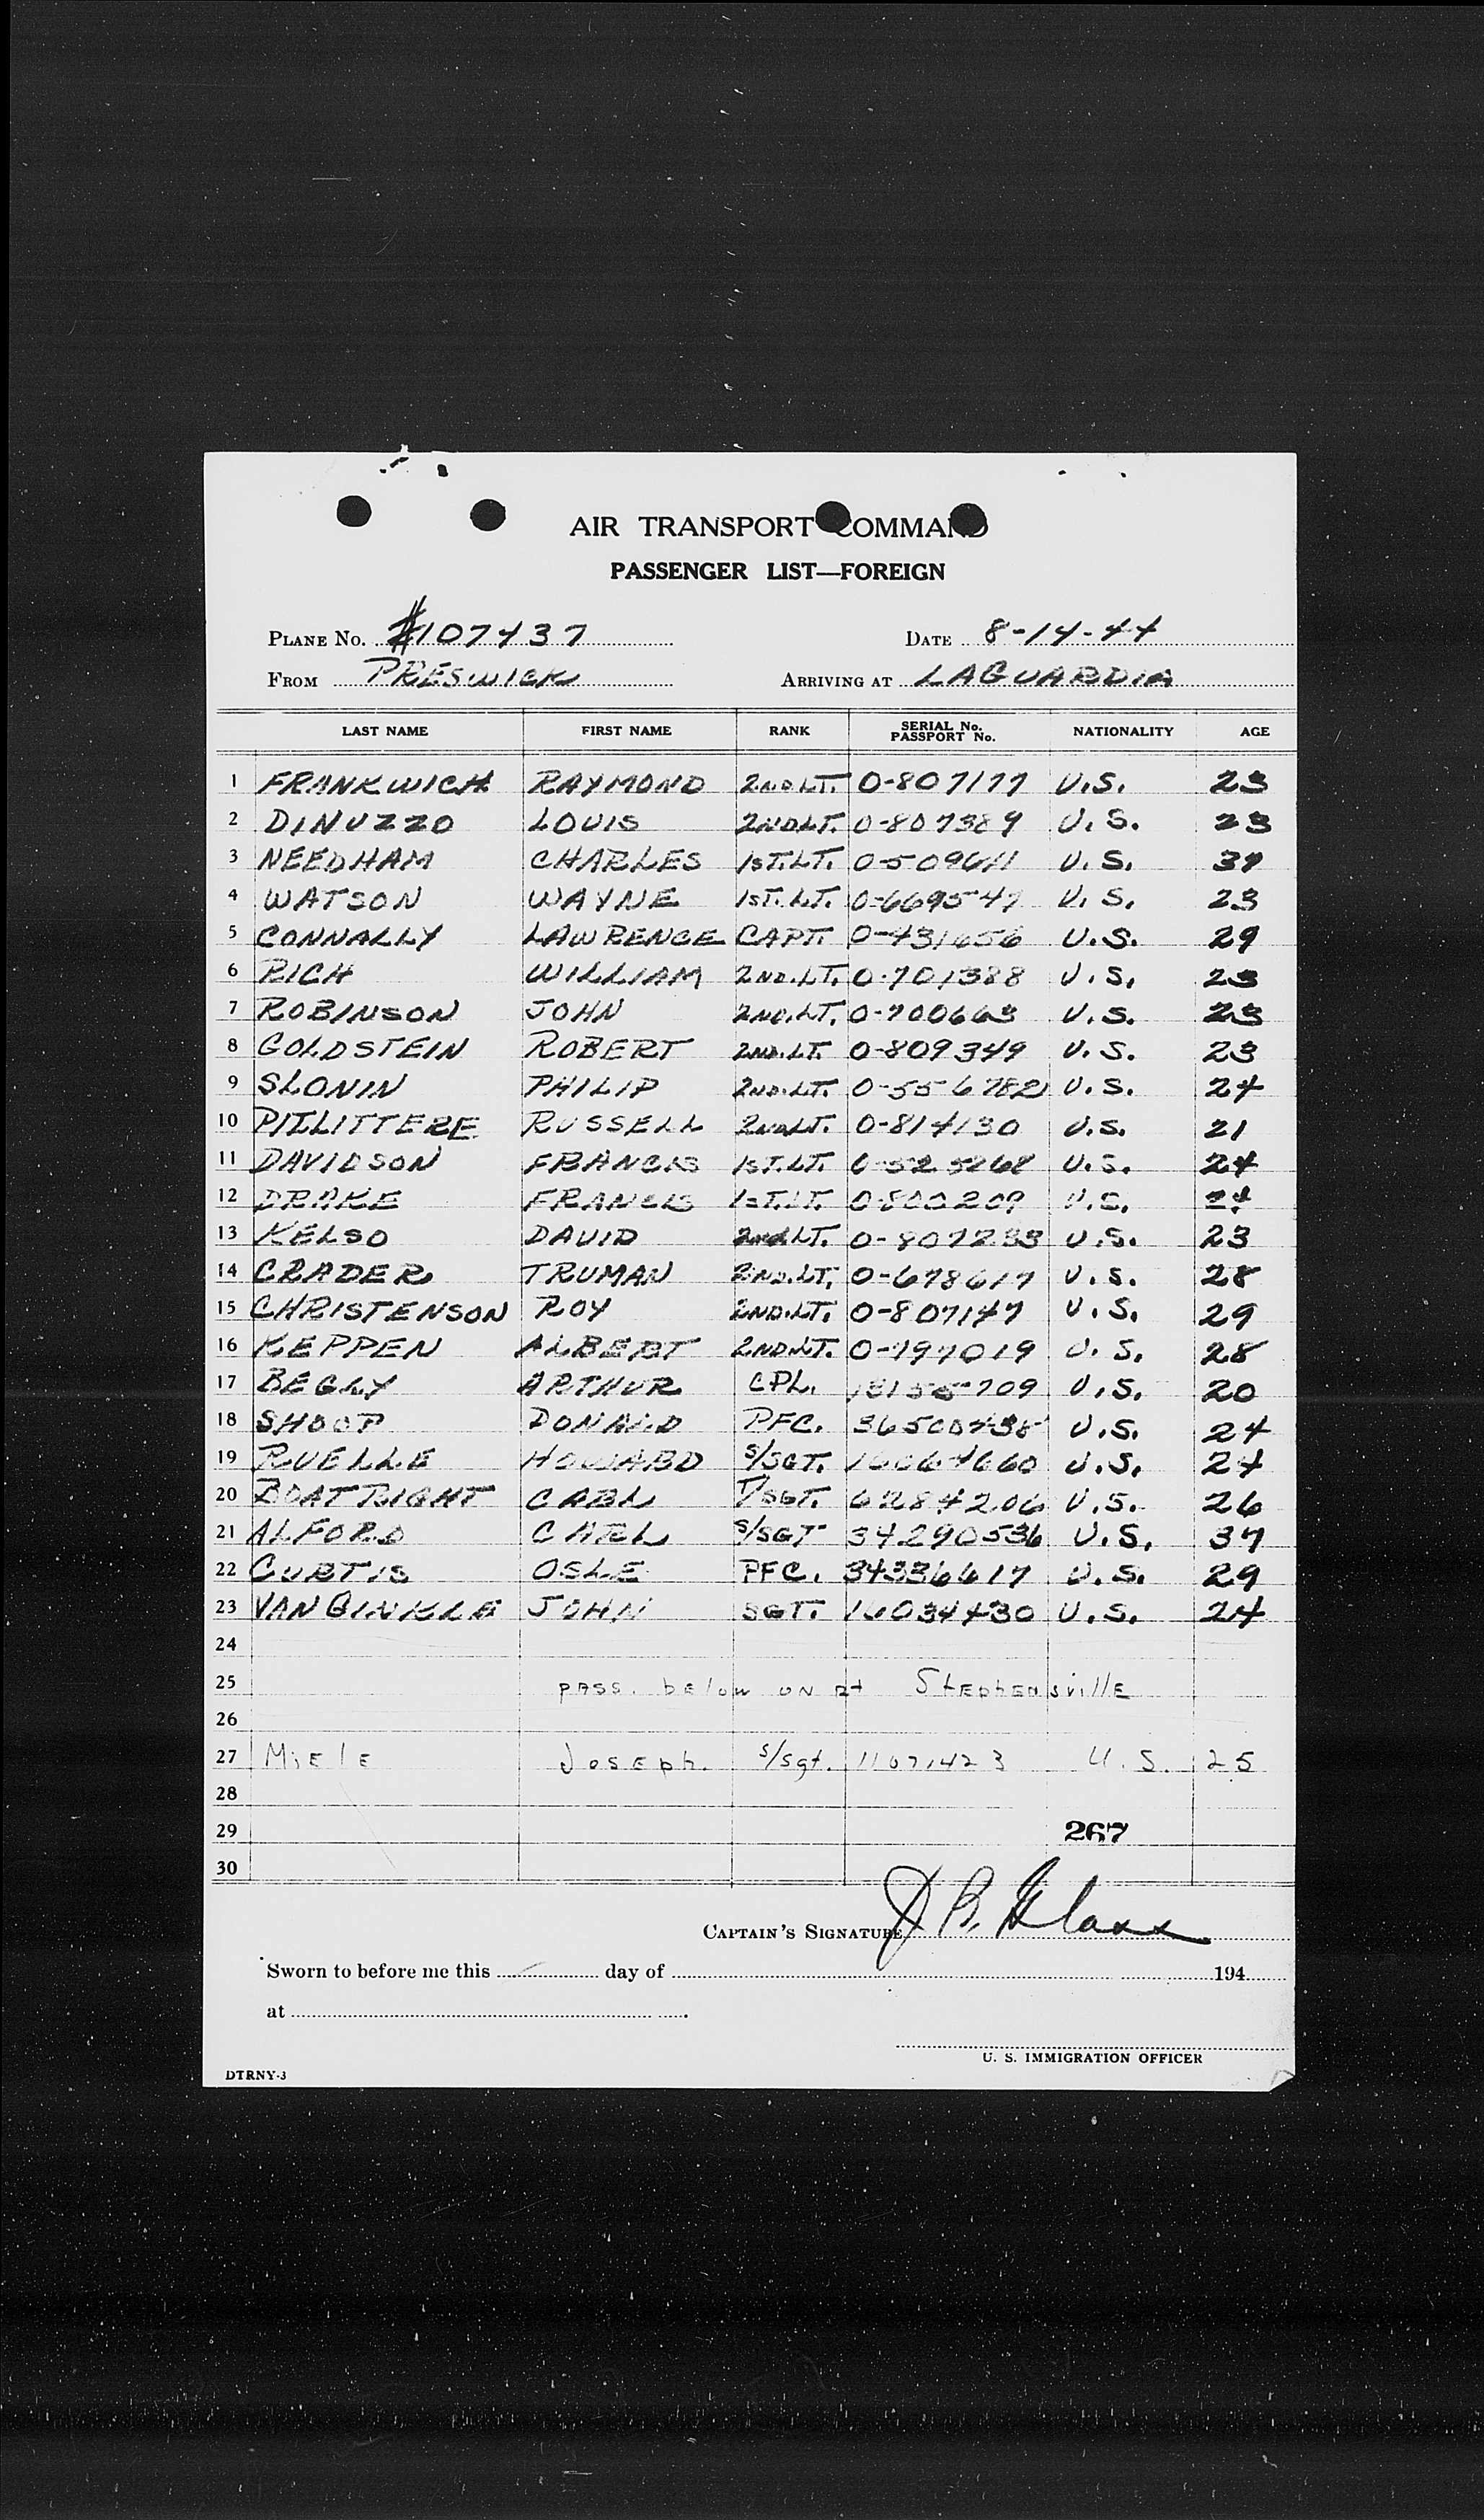 AIR TRANSPORT COMMAND
PASSENGER LIST—FOREIGN
PLANE No. #107437 DATE 8-14-44
FROM PRESWICK ARRIVING AT LAGUARDIA
LAST NAME FIRST NAME RANK SERIAL No. PASSPORT No. NATIONALITY AGE
1 FRANKWICH RAYMOND 2ND LT. 0-807177 U.S. 23
2 DINUZZO LOUIS 2ND LT. 0-807389 U.S. 23
3 NEEDHAM CHARLES 1ST. LT. 0-509611 U.S. 37
4 WATSON WAYNE 1ST. LT. 0-669547 U.S. 23
5 CONNALLY LAWRENCE CAPT. 0-431656 U.S. 29
6 RICH WILLIAM 2ND. LT. 0-701388 U.S. 23
7 ROBINSON JOHN 2ND. LT. 0-700663 U.S. 23
8 GOLDSTEIN ROBERT 2ND. LT. 0-809349 U.S. 23
9 SLONIN PHILIP 2ND. LT. 0-556782 U.S. 24
10 PITLITTERE RUSSELL 2ND LT. 0-814130 U.S. 21
11 DAVIDSON FRANCIS 1ST. LT. 0-525268 U.S. 24
12 DRAKE FRANCIS 1ST. LT. 0-800209 U.S. 24
13 KELSO DAVID 2ND LT. 0-807233 U.S. 23
14 CRADER TRUMAN 2ND. LT. 0-678617 U.S. 28
15 CHRISTENSON ROY 2ND. LT. 0-807147 U.S. 29
16 KEPPEN ALBERT 2ND. LT. 0-797019 U.S. 28
17 BEGLY ARTHUR CPL. 18155709 U.S. 20
18 SHOOP DONALD PFC. 36500438 U.S. 24
19 RUELLE HOWARD S/SGT. 16064660 U.S. 24
20 BOATRIGHT CARL T/SGT. 6284206 U.S. 26
21 ALFORD CARL S/SGT 34290536 U.S. 37
22 CURTIS OSLE PFC. 34336617 U.S. 29
23 VAN GINKLE JOHN SGT. 16034430 U.S. 24
24
25 PASS. below ON At StephensvillE
26
27 MiElE JosEph. S/Sgt. 11071423 U.S. 25
28
29 267
30
CAPTAIN'S SIGNATURE J B. Glass
Sworn to before me this day of 194
at
U. S. IMMIGRATION OFFICER
DTRNY-3